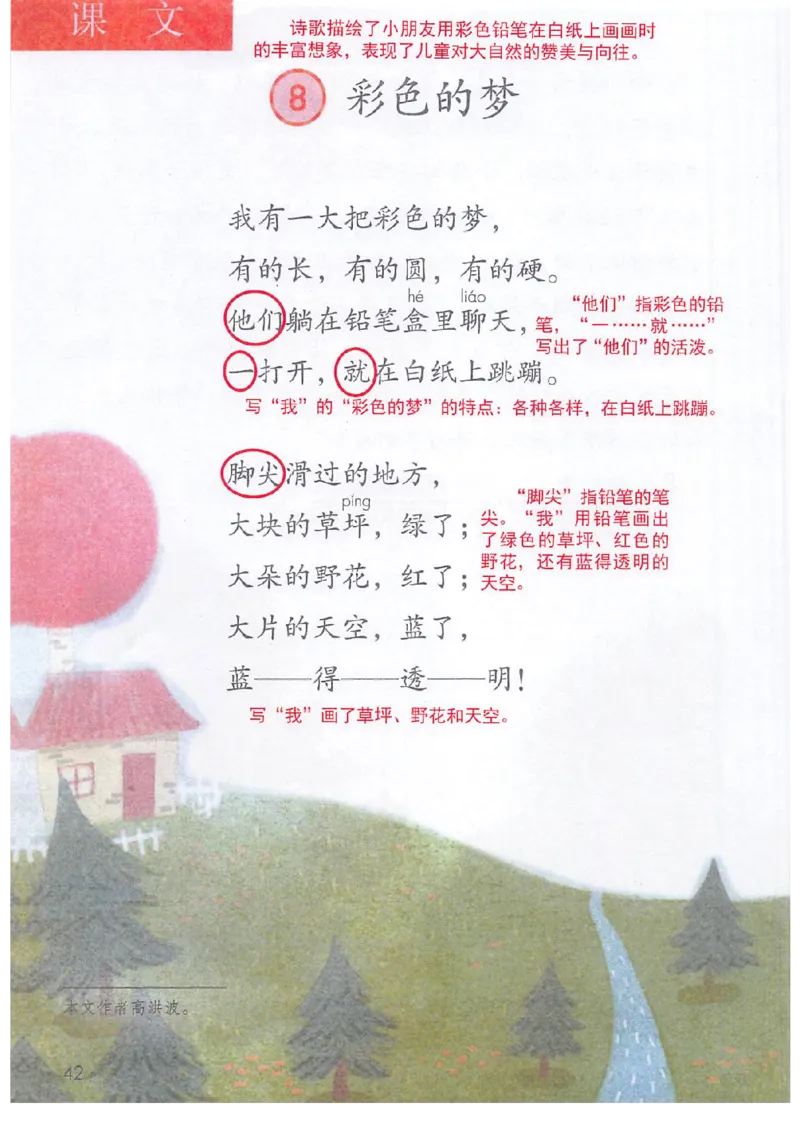 课 文
诗歌描绘了小朋友用彩色铅笔在白纸上画画时
的丰富想象，表现了儿童对大自然的赞美与向往。
8 彩色的梦
我有一大把彩色的梦，
有的长，有的圆，有的硬。
hé liáo
他们躺在铅笔盒里聊天，
“他们”指彩色的铅
笔，“一……就……”
写出了“他们”的活泼。
一打开，就在白纸上跳蹦。
写“我”的“彩色的梦”的特点：各种各样，在白纸上跳蹦。
脚尖滑过的地方，
píng
大块的草坪，绿了；
大朵的野花，红了；
“脚尖”指铅笔的笔
尖。“我”用铅笔画出
了绿色的草坪、红色的
野花，还有蓝得透明的
天空。
大片的天空，蓝了，
蓝——得——透——明！
写“我”画了草坪、野花和天空。
本文作者高洪波。
42